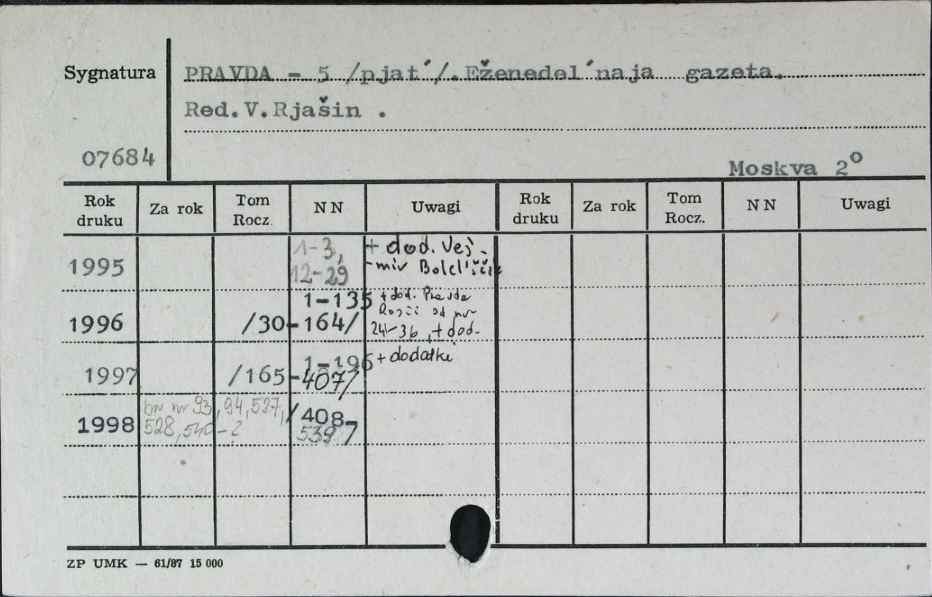 Sygnatura PRAVDA - 5 /pjat´/. Eženedel´naja gazeta.
Red. V. Rjašin .
07684
Moskva 2º
Rok druku Za rok Tom Rocz. NN Uwagi Rok druku Za rok Tom Rocz. NN Uwagi
1995 1-3, 12-29 + dod.
1996 /30-164/ 1-135 + dod. Pravda
24-36, + dod.
1997 /165-407/ 1-196 + dodatki
1998 nr 93, 94, 527, 528, 540-? /408-539/
ZP UMK — 61/87 15 000